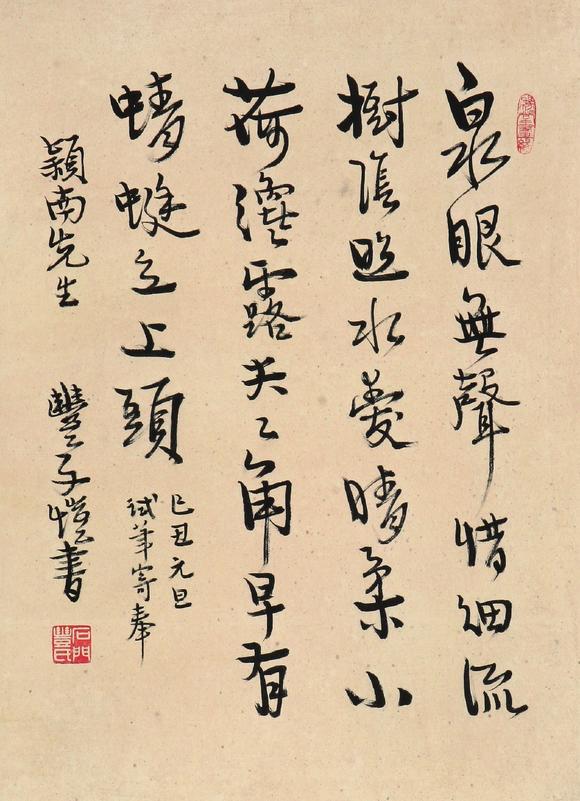 泉眼無聲惜細流
樹陰照水愛晴柔小
荷纔露尖〻角早有
蜻蜓立上頭
己丑元旦
試筆寄奉
穎南先生 豐子愷書
石門豐氏